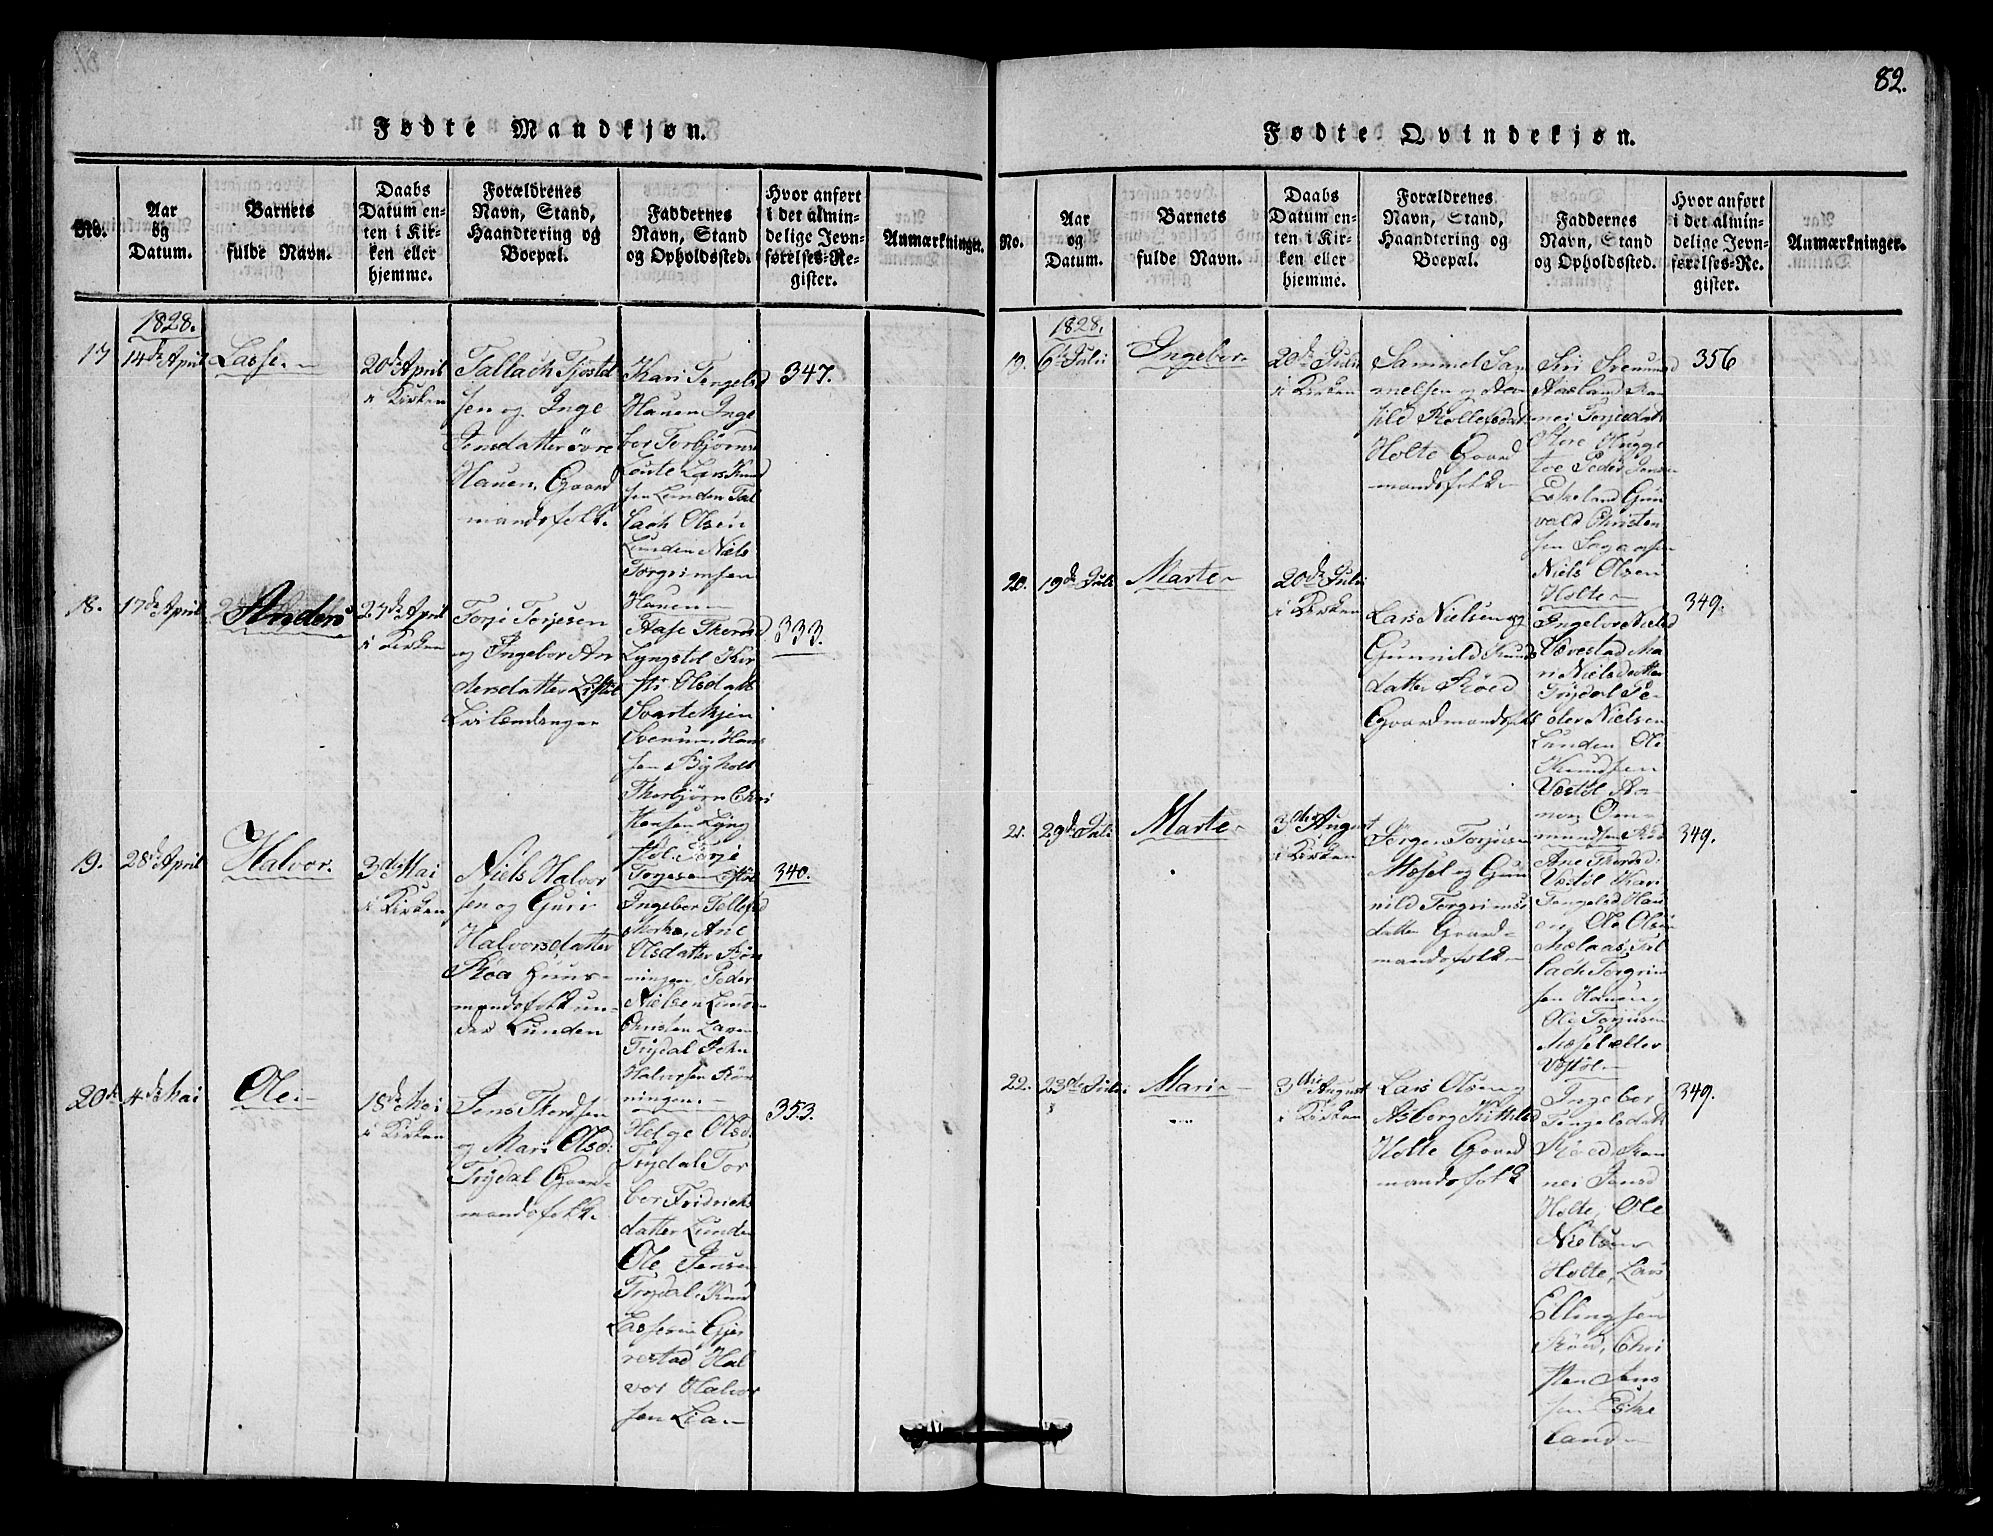 82.
Fødte Mandkjøn.
No.
Aar
og
Datum.
Barnets
fulde Navn.
Daabs
Datum en-
ten i Kir-
ken eller
hjemme.
Forældrenes
Navn, Stand,
Haandtering og
Boepæl.
Faddernes
Navn, Stand
og Opholdssted.
Hvor anført
i det almin-
delige Jevn-
førelses-Re-
gister.
Anmærkninger.
1828.
17
14de April
Lasse
20de April
i Kirken
Tallach Tjostel
sen og Inge
Jensdatter övre
Hauen, Gaard
mandsfolk.
Kari Tengelsd
Hauen Inge
bor Torbjørns
Lars Knud
sen Lunden Tal
lach Olsen
Lunden Niels
Torgrimsen
Hauen
347.
18.
17de April
Anders
27de April
i Kirken
Torje Torjesen
og Ingebor An
dersdatter
Aase Thorsd
Lyngstöl Kir
sti Olsdatt
Svartekjen
Svenum Hans
sen
Thorbjørn Chri
stensen Lyng
støl Torje
Torjesen
333.
19.
28de April
Halvor.
3die Mai
i Kirken
Niels Halvor
sen og Guri
Halvorsdatter
Röa Huus-
mandsfolk un-
der Lunden
Ingebor Tellefsd
Ane
Olsdatter Rön
ningen Peder
Nielsen Lunde
Christen Larsen
Trydal John
Halvorsen Rön
ningen
340.
20de
4de Mai
Ole
18de Mai
i Kirken
Jens Thordsen
og Mari Olsd:
Trydal Gaard-
mandsfolk.
Helge Olsd.
Trydal Tor
bor Fridrichs
datter Lunden
Ole Jensen
Trydal, Knud
Lassesen Gjer
restad Hal
vor Halvor
sen Lia
353.
Fødte Qvindekjøn.
No.
Aar
og
Datum.
Barnets
fulde Navn.
Daabs
Datum en-
ten i Kir-
ken eller
hjemme.
Forældrenes
Navn, Stand,
Haandtering og
Boepæl.
Faddernes
Navn, Stand
og Opholdssted.
Hvor anført
i det almin-
delige Jevn-
førelses-Re-
gister.
Anmærkninger.
1828.
19.
6te Julii
Ingebor
20de Julii
i Kirken
Sammel Sam
melsen og
Rollefsdatt
Holte Gaard
mandsfolk
Siri Svenumsd
Aasland Ran
nei Torjesdat
Hegge
toe Peder Jensen
Eskeland Gun
vald Christen
sen
Niels Olsen
Holte
356
20.
19de Juli
Marte
20de Juli
i Kirken
Lars Nielsen og
Gunnild Knuds
datter Röed
Gaardmandsfolk
Ingebor Nielsd
Værestad Ma
ri Nielsdatter
Trydal Pe-
der Nielsen
Lunden Ole
Knudsen
Vestöl
Om-
mundsen Röed
349.
21.
29de Juli
Marte
3die August
i Kirken
Jörgen Torjusen
Mæsel og Gun
nild Torgrims
datter Gaard-
mandsfolk
Ane Thordsd:
Vestöl Kari
Tengelsd Hau
en, Ole Olsen
Mælaas, Tal
lach Torgrim
sen Hauen
Ole Torjusen
Mæsel
Vestöl
349.
22.
23de Julii
Mari
3die August
i Kirken
Lars Olsen og
Asberg Kittelsd
Holte Gaard
mandsfolk
Ingebor
Tengelsdat
Röed, Ran
nei Jensd
Holte, Ole
Nielsen
Holte, Lars
Ellingsen
Röed, Chri
sten Jens
sen Eske
land
349.